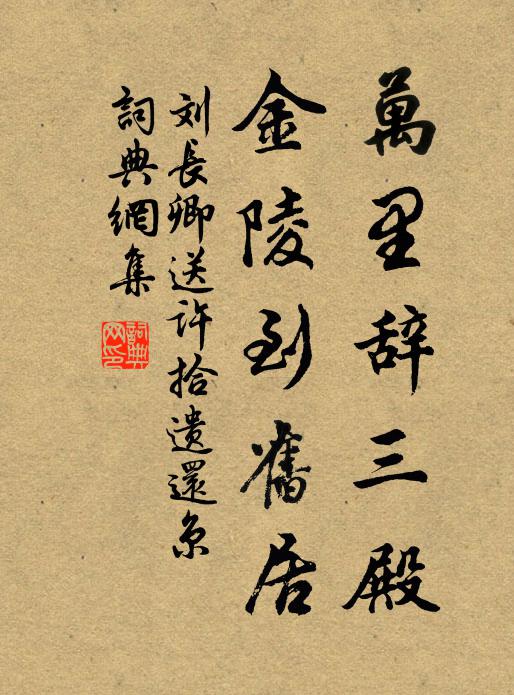 萬里辞三殿
金陵到舊居
刘長卿送許拾遺還京
詞典網集
詞典网印